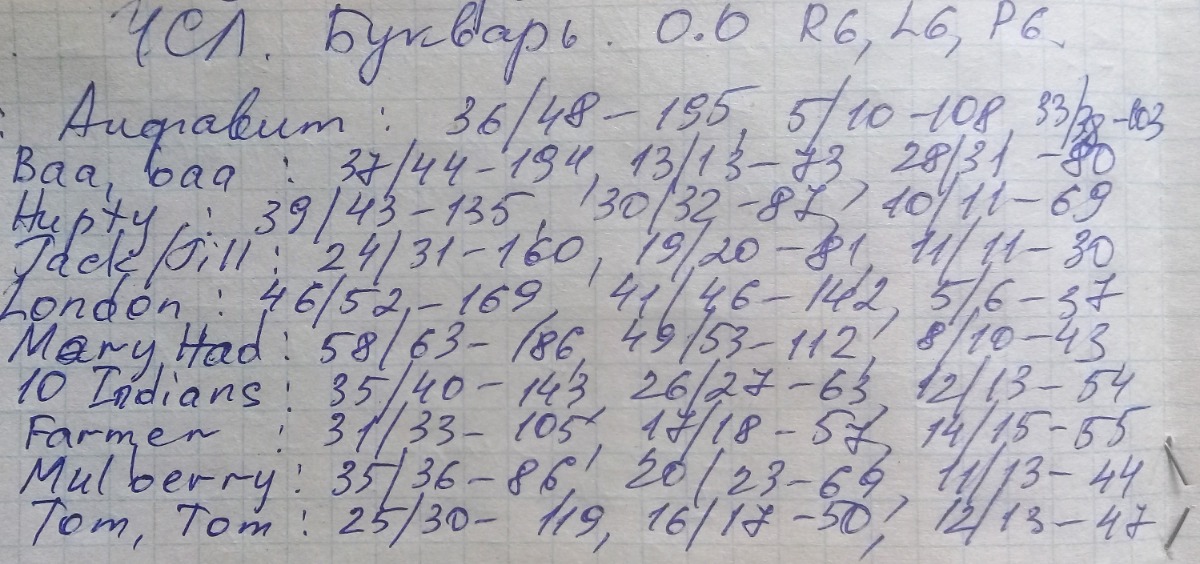 ЧСЛ. Букварь. О.О R6, L6, P6.
: Алфавит : 36/48 – 195, 5/10 – 108, 33/38 – 103
Baa, baa : 37/44 – 194, 13/13 – 73, 28/31 – 80
Hupty : 39/43 – 135, 30/32 – 87, 10/11 – 69
Jack/Jill : 24/31 – 160, 19/20 – 81, 11/11 – 30
London : 46/52 – 169, 41/46 – 142, 5/6 – 37
Mary Had : 58/63 – 186, 49/53 – 112, 8/10 – 43
10 Indians : 35/40 – 143, 26/27 – 63, 12/13 – 54
Farmer : 31/33 – 105, 17/18 – 57, 14/15 – 55
Mulberry : 35/36 – 86, 20/23 – 69, 11/13 – 44
Tom, Tom : 25/30 – 119, 16/17 – 50, 12/13 – 47